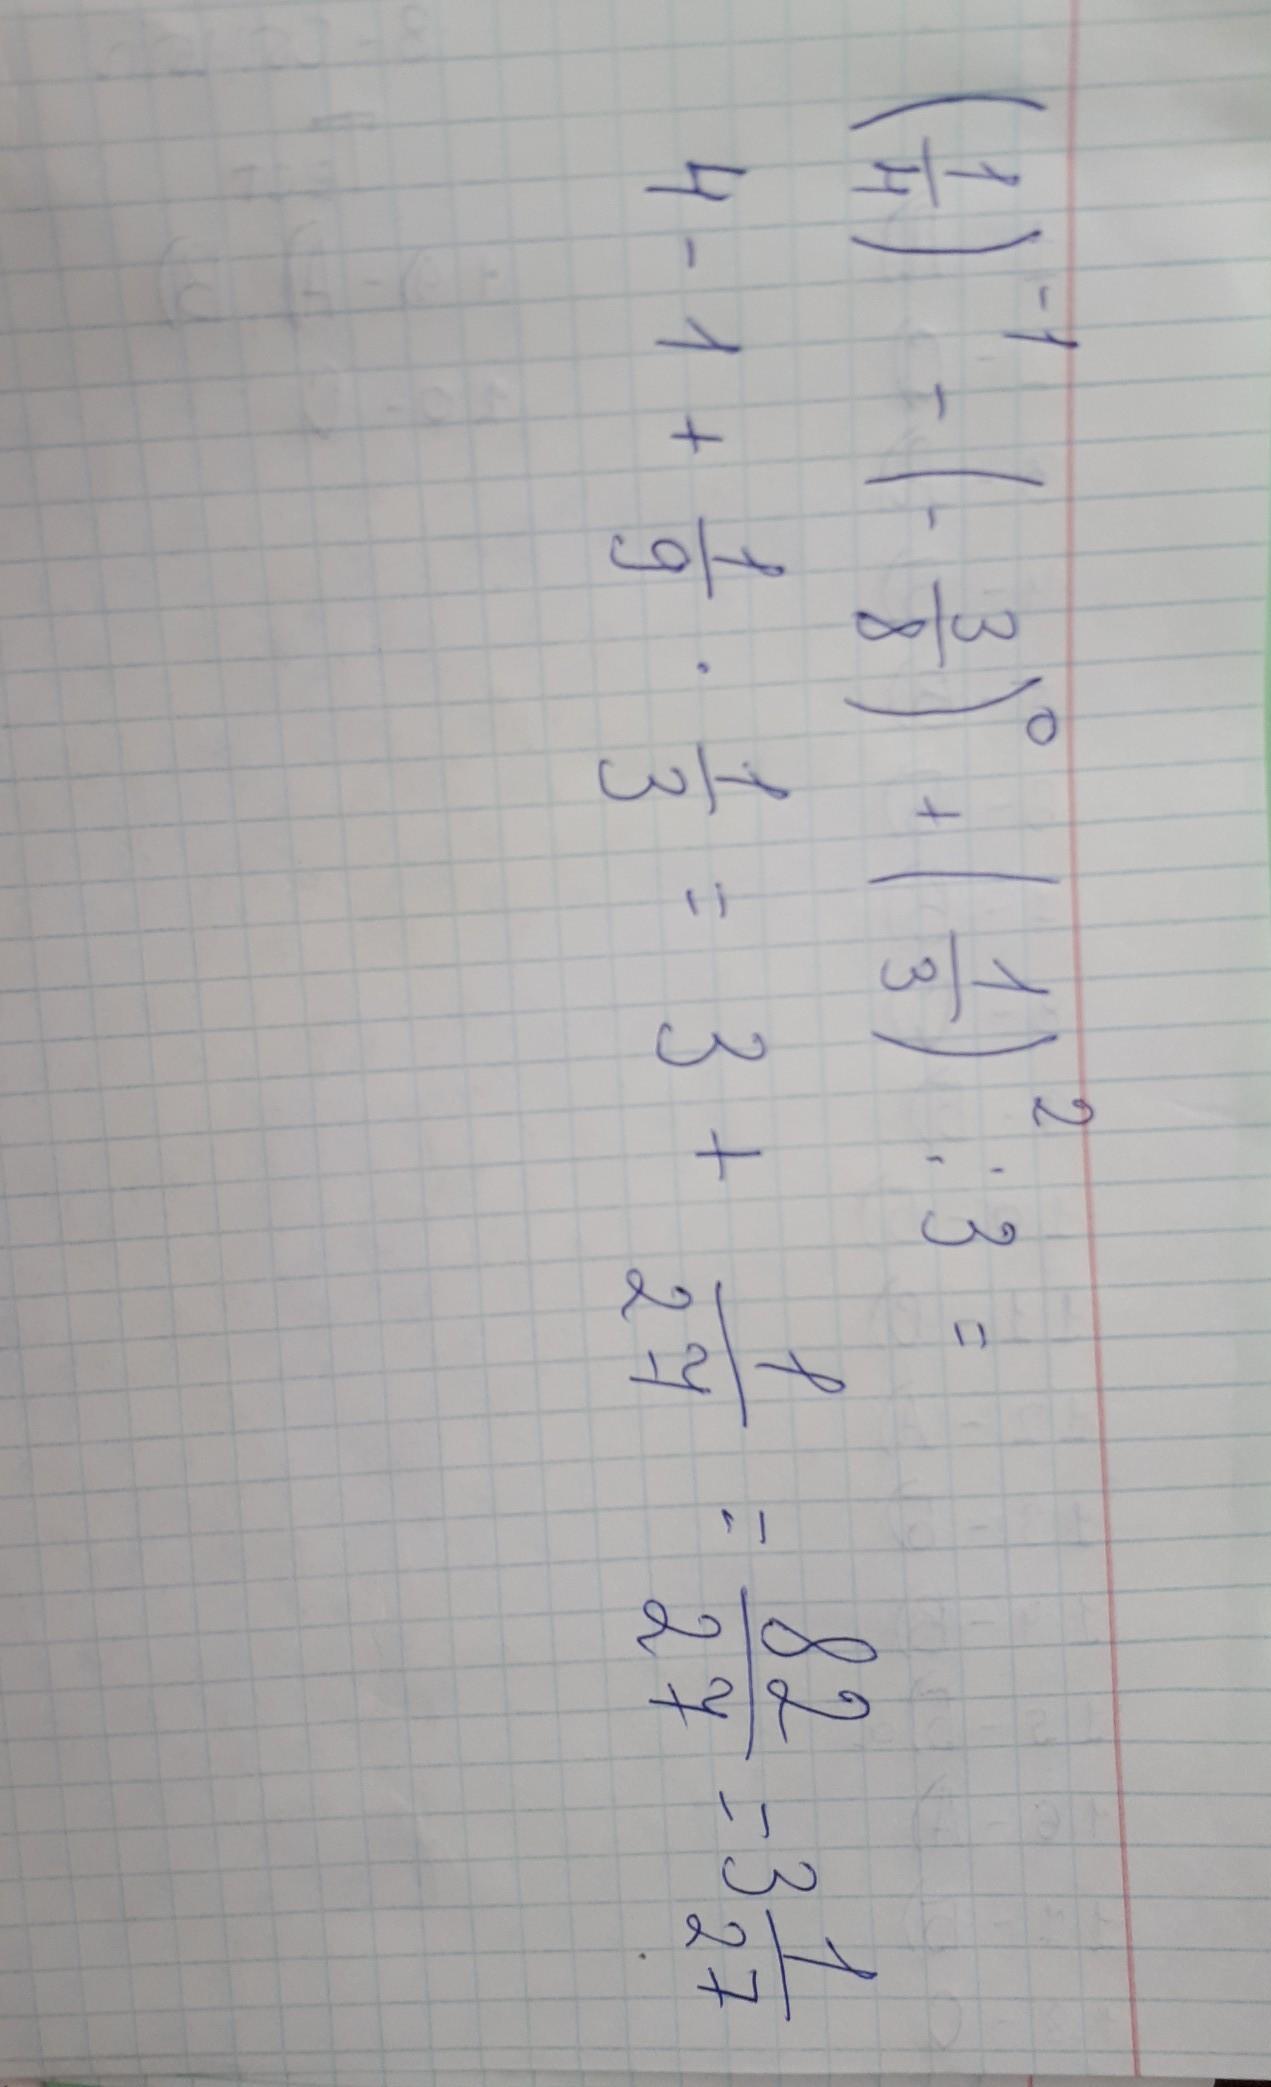 (1/4)^-1 - (-3/8)^0 + (1/3)^2 : 3 =
4 - 1 + 1/9 · 1/3 = 3 + 1/27 = 82/27 = 3 1/27